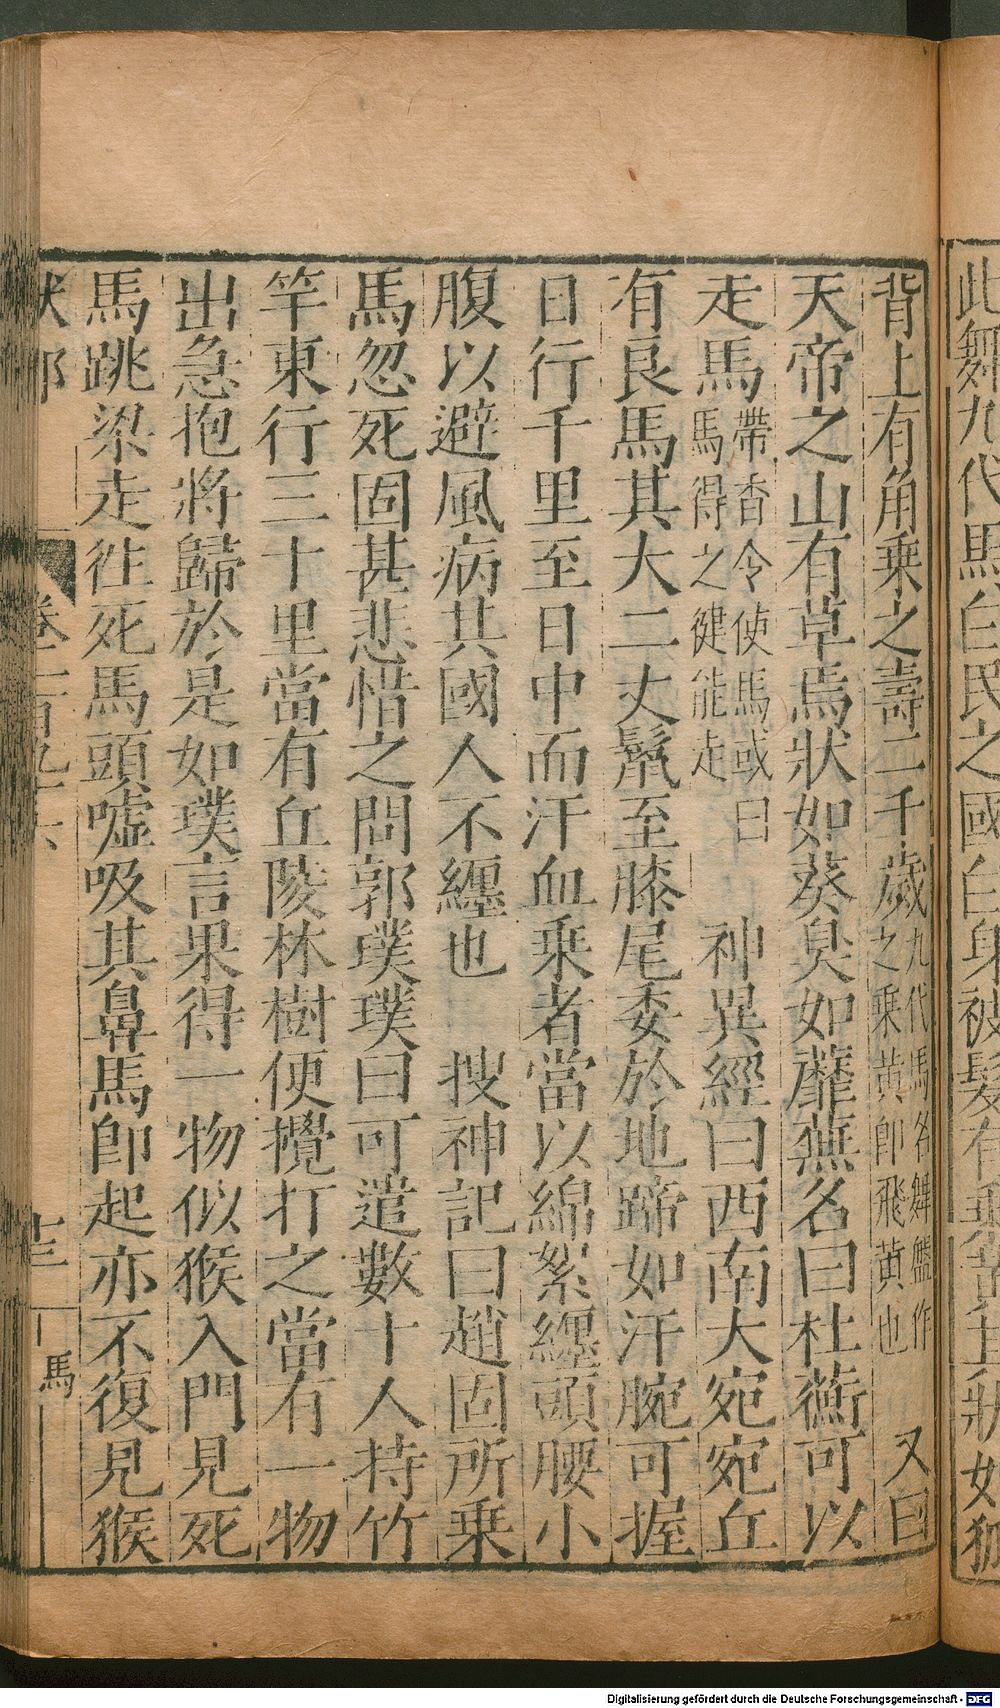 此舞九代馬白民之國白身被髮有乗黄其狀如狐
背上有角乗之壽二千歲九代馬名舞盤作之乗黄即飛黄也 又曰
天帝之山有草焉狀如葵臭如蘼蕪名曰杜蘅可以
走馬帶香令使馬或曰馬得之健能走 神異經曰西南大宛宛丘
有良馬其大二丈鬛至膝尾委於地蹄如汗腕可握
日行千里至日中而汗血乗者當以綿絮纒頭腰小
腹以避風病其國人不纒也 搜神記曰趙固所乗
馬忽死固甚悲惜之問郭璞璞曰可遣數十人持竹
竿東行三十里當有丘陵林樹便攪打之當有一物
出急抱將歸於是如璞言果得一物似猴入門見死
馬跳梁走徃死馬頭噓吸其鼻馬即起亦不復見猴
十三
馬
Digitalisierung gefördert durch die Deutsche Forschungsgemeinschaft - DFG